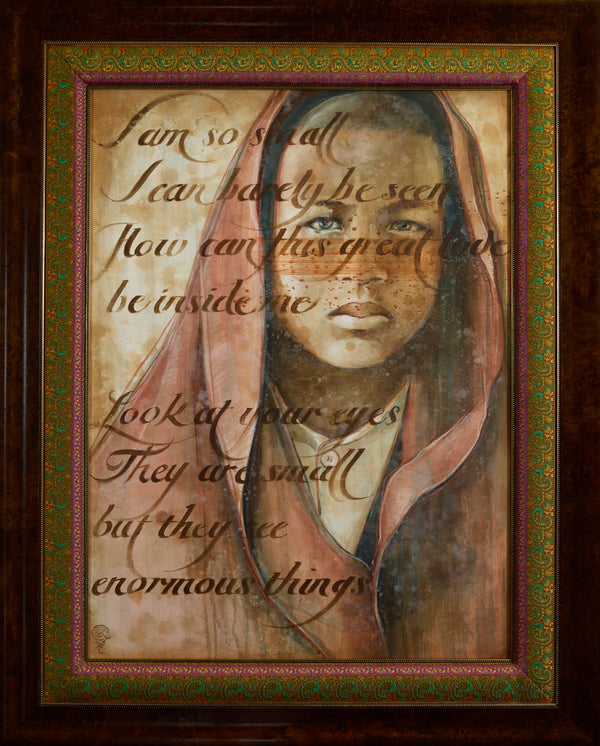 I am so small
I can barely be seen
How can this great love
be inside me
Look at your eyes
They are small
but they see
enormous things